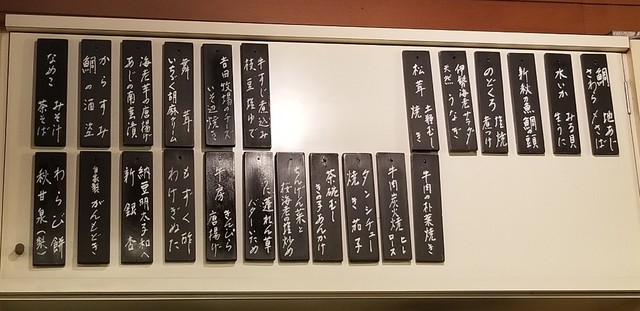 鯛 地あじ
さわら 〆さば
水いか みる貝
生うに
新秋刀魚 鯛頭
のどくろ 塩焼
煮つけ
伊勢海老サラダ
天然 うなぎ
松茸 土瓶むし
焼き
牛すじ煮込み
枝豆塩ゆで
吉田牧場のチーズ
いそ辺焼き
舞茸
いちじく胡麻クリーム
海老芋の唐揚げ
あじの南蛮漬
からすみ
鯛の酒盗
なめこ みそ汁
茶そば
牛肉の朴葉焼き
牛肉炭火焼 ヒレ
ロース
タンシチュー
焼き茄子
茶碗むし
きのこあんかけ
ちんげん菜と
桜海老の塩炒め
ほうれん草
バターいため
牛房 きんぴら
唐揚げ
もずく酢
わけぎぬた
納豆明太子和へ
新銀杏
自家製 がんもどき
わらび餅
秋甘泉(梨)